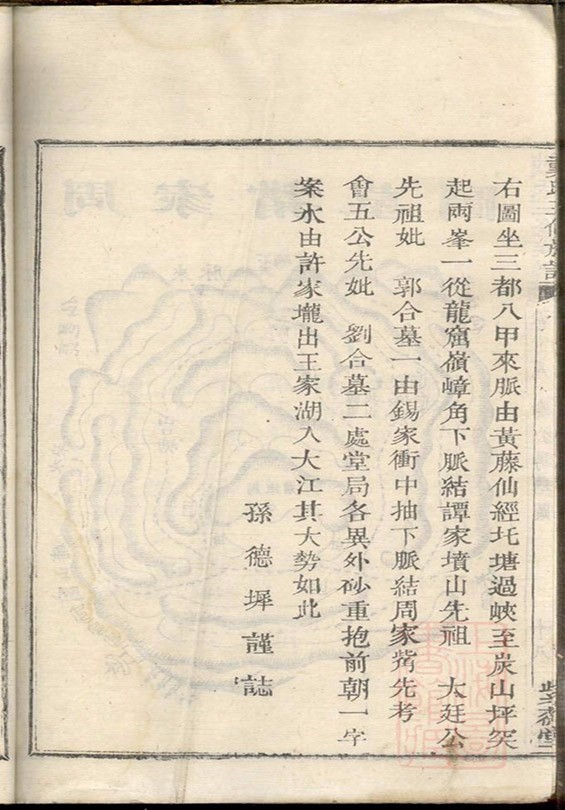 右圖坐三都八甲來脈由黃藤仙經圫塘過峽至炭山坪突
起兩峯一從龍窟嶺嶂角下脈結譚家墳山先祖　大廷公
先祖妣　郭合墓一由錫家衝中抽下脈結周家觜先考
會五公先妣　劉合墓二處堂局各異外砂重抱前朝一字
案水由許家壠出王家湖入大江其大勢如此
孫德墀謹誌